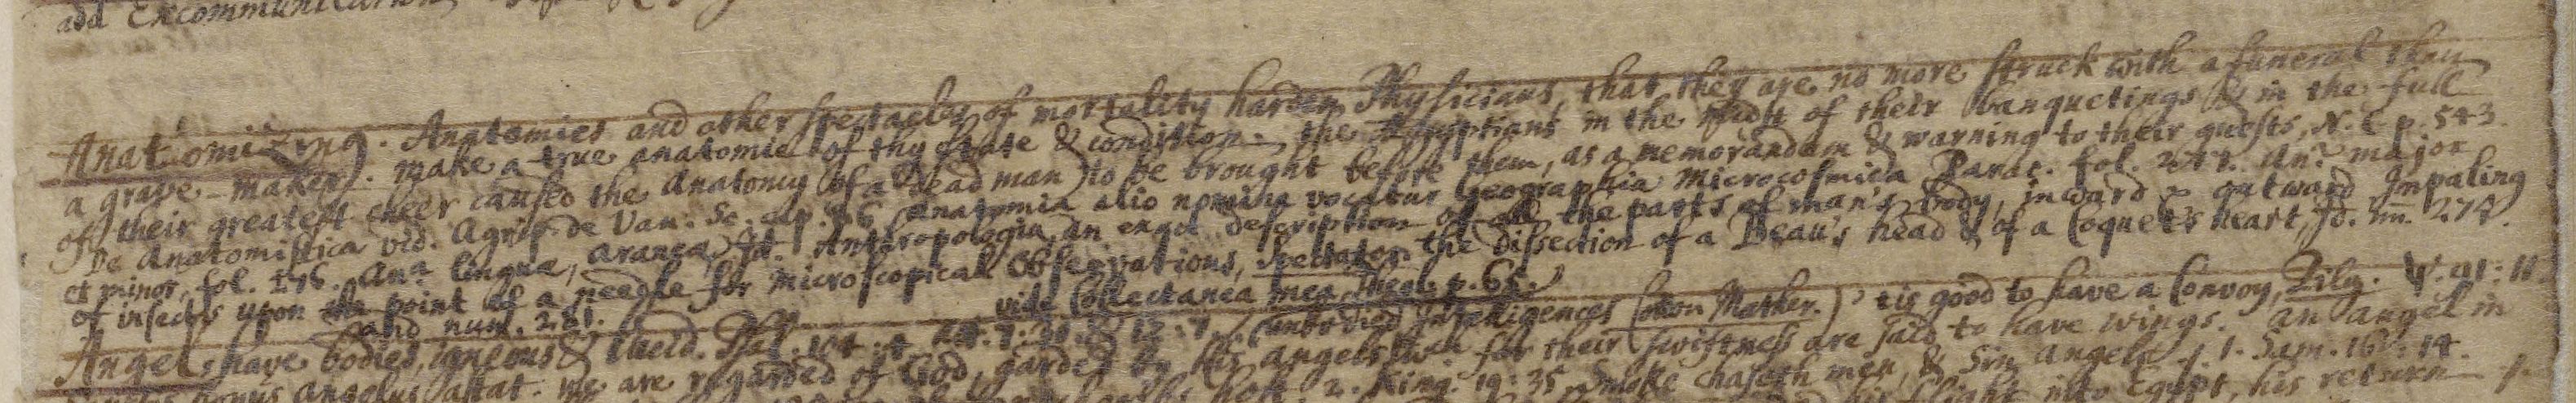 add Excommunication
Anatomizing. Anatomies and other spectacles of mortality harden Physicians, that they are no more struck with a funeral than
a grave-maker. make a true anatomie of thy state & condition. the Ægyptians in the midst of their banquetings & in the full
of their greatest cheer caused the anatomy of a dead man to be brought before them, as a memorandum & warning to their guests, N. C p. 543.
De Anatomistica vid. Agrip. de Van. Sc. cap. 86 Anatomia alio nomine vocatur Geographia Microcosmica Parat. fol. 277. an.ª major
et minor, fol. 276. an.ª linguæ, aranea, Id. Anthropologia, an exact description of all the parts of man's body, inward & outward Impaling
of insects upon the point of a needle for microscopical observations, Spectator. the dissection of a Beau's head & of a Coquet's heart, Id. nu. 275.
and num. 281. vide Collectanea mea Theol. p. 65.
Angels have bodies, igneous & Psal. 104. 4 7:30. & 12:7. (unbodied Intelligences Cotton Mather.) 'tis good to have a Convoy, Lily. ψ. 91:11.
bonus angelus astat. we are regarded of God, garded by his angels, wch for their swiftness are said to have wings. an angel in
host. 2. King. 19:35 Smoke chaseth men, & Sin angels 1. Sam. 16. 14.
flight into Egypt, his return